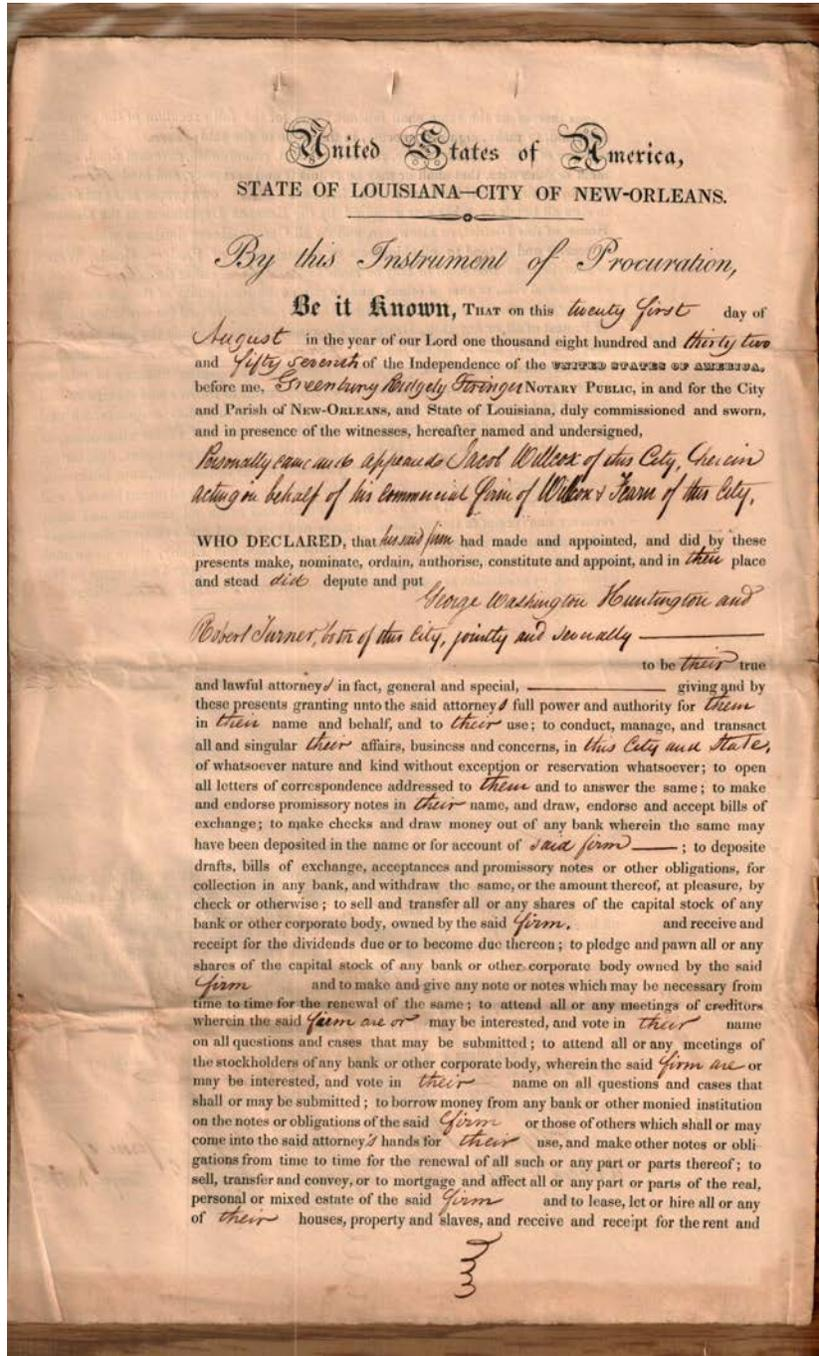 United States of America,
STATE OF LOUISIANA—CITY OF NEW-ORLEANS.
By this Instrument of Procuration,
Be it Known, THAT on this twenty first day of
August in the year of our Lord one thousand eight hundred and thirty two
and fifty seventh of the Independence of the UNITED STATES OF AMERICA,
before me, Greenbury Ridgely Stringer NOTARY PUBLIC, in and for the City
and Parish of NEW-ORLEANS, and State of Louisiana, duly commissioned and sworn,
and in presence of the witnesses, hereafter named and undersigned,
Personally came and appeared Jacob Willcox of this City, herein
acting on behalf of his commercial firm of Wilcox & Fearn of this City,
WHO DECLARED, that his said firm had made and appointed, and did by these
presents make, nominate, ordain, authorise, constitute and appoint, and in their place
and stead did depute and put
George Washington Huntington and
Robert Turner, both of this City, jointly and severally
to be their true
and lawful attorneys in fact, general and special, giving and by
these presents granting unto the said attorneys full power and authority for them
in their name and behalf, and to their use; to conduct, manage, and transact
all and singular their affairs, business and concerns, in this City and State,
of whatsoever nature and kind without exception or reservation whatsoever; to open
all letters of correspondence addressed to them and to answer the same; to make
and endorse promissory notes in their name, and draw, endorse and accept bills of
exchange; to make checks and draw money out of any bank wherein the same may
have been deposited in the name or for account of said firm —; to deposite
drafts, bills of exchange, acceptances and promissory notes or other obligations, for
collection in any bank, and withdraw the same, or the amount thereof, at pleasure, by
check or otherwise; to sell and transfer all or any shares of the capital stock of any
bank or other corporate body, owned by the said firm. and receive and
receipt for the dividends due or to become due thereon; to pledge and pawn all or any
shares of the capital stock of any bank or other corporate body owned by the said
firm and to make and give any note or notes which may be necessary from
time to time for the renewal of the same; to attend all or any meetings of creditors
wherein the said firm are or may be interested, and vote in their name
on all questions and cases that may be submitted; to attend all or any meetings of
the stockholders of any bank or other corporate body, wherein the said firm are or
may be interested, and vote in their name on all questions and cases that
shall or may be submitted; to borrow money from any bank or other monied institution
on the notes or obligations of the said firm or those of others which shall or may
come into the said attorney's hands for their use, and make other notes or obli
gations from time to time for the renewal of all such or any part or parts thereof; to
sell, transfer and convey, or to mortgage and affect all or any part or parts of the real,
personal or mixed estate of the said firm and to lease, let or hire all or any
of their houses, property and slaves, and receive and receipt for the rent and